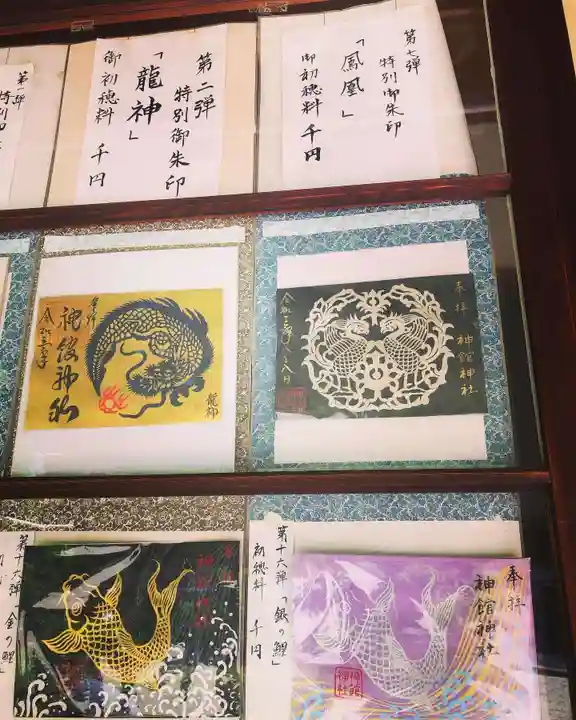 第七弾
特別御朱印
「鳳凰」
御初穂料 千円
第二弾
特別御朱印
「龍神」
御初穂料 千円
第一弾
奉拝
神館神社
龍神
神館神社
第十六弾「銀の鯉」
初穂料 千円
奉拝
神館神社
神館
神社
第十六弾「金の鯉」